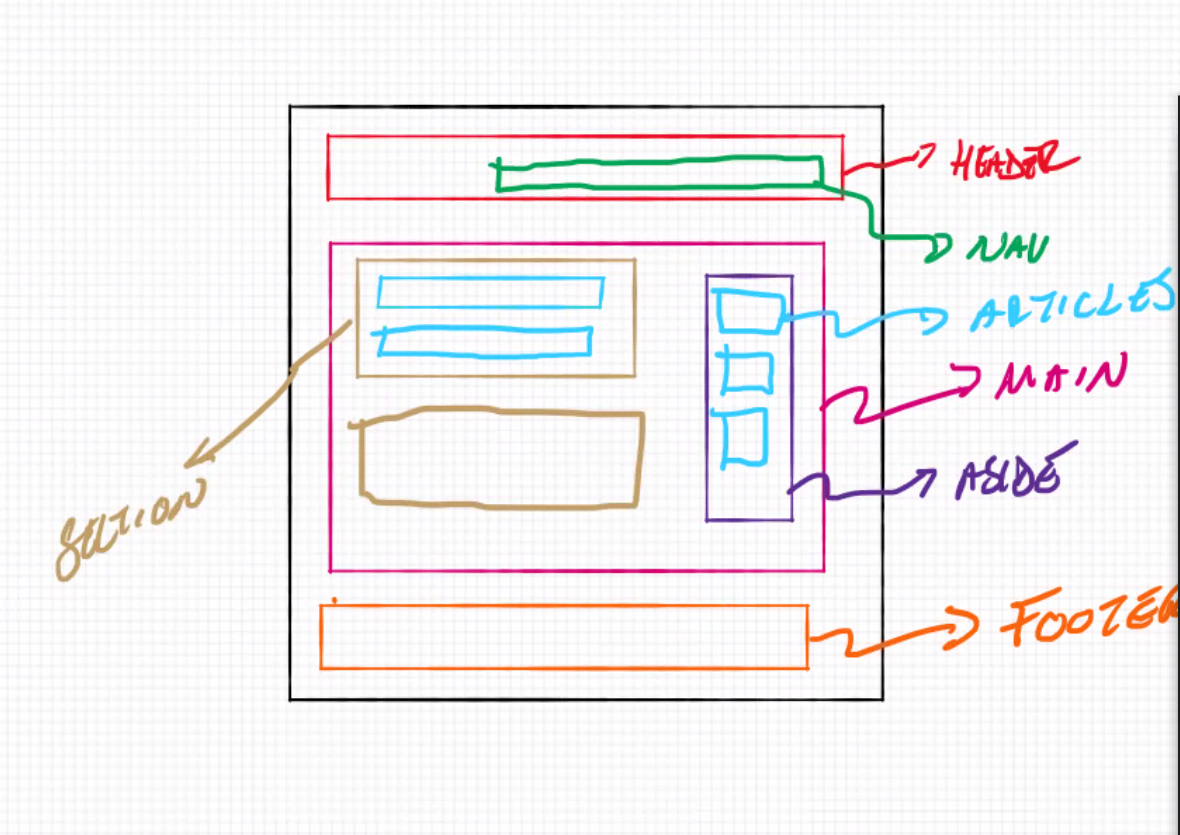 HEADER
NAV
ARTICLES
MAIN
ASIDE
SECTION
FOOTER